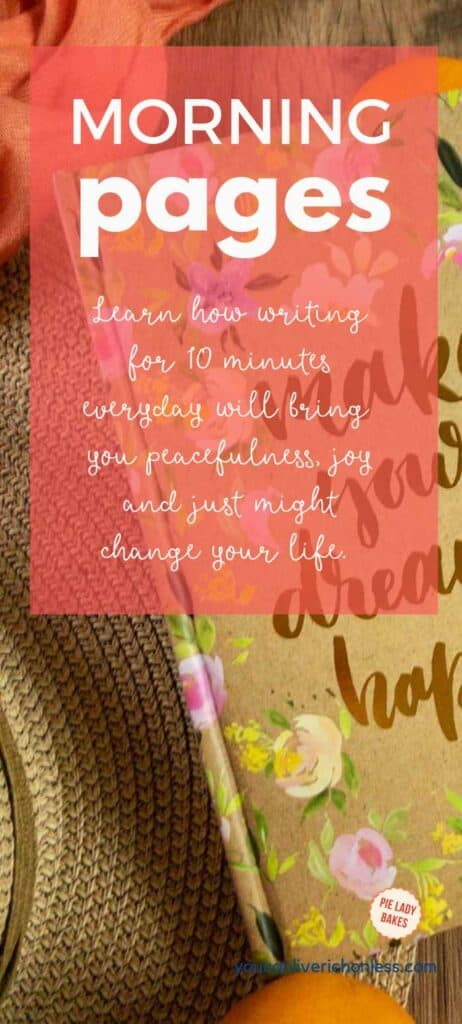 MORNING
pages
Learn how writing
for 10 minutes
everyday will bring
you peacefulness, joy
and just might
change your life.
make
your
drea
hap
PIE LADY
BAKES
youcanliverichonless.com